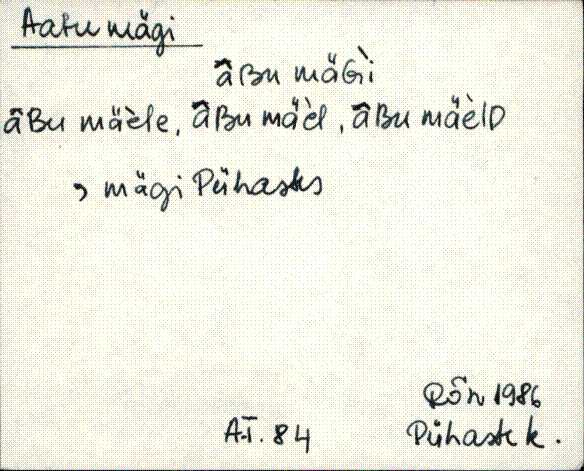 Aatu mägi
âBu mäGì
âBu mäèle, âBu mäèl, âBu mäèlD
, mägi Pühastes
RÕn 1986
A.T. 84 Pühaste k.